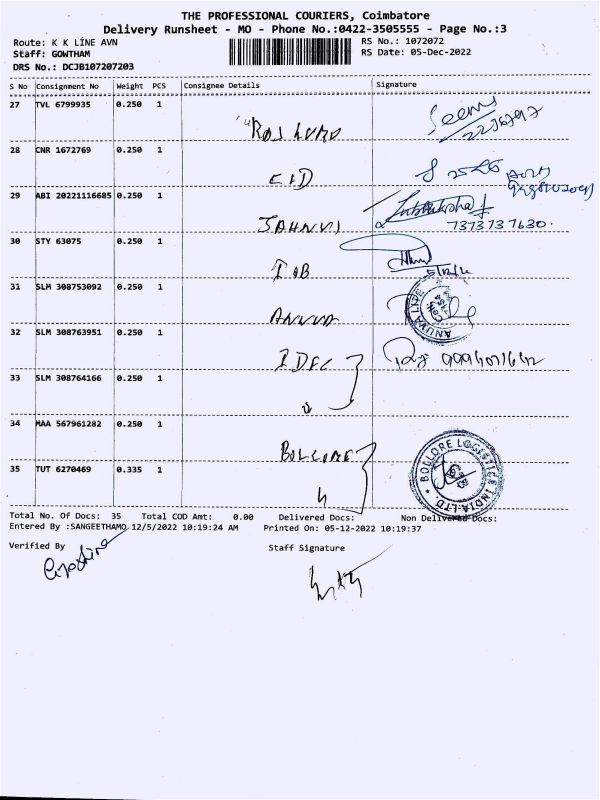 THE PROFESSIONAL COURIERS, Coimbatore
Delivery Runsheet - MO - Phone No.:0422-3505555 - Page No.:3
Route: K K LINE AVN
RS No.: 1072072
Staff: GOWTHAM
RS Date: 05-Dec-2022
DRS No.: DCJB107207203
S No Consignment No Weight PCS Consignee Details Signature
27 TVL 6799935 0.250 1
28 CNR 1672769 0.250 1
CID
29 ABI 20221116685 0.250 1
JAHNVI
7373737630.
30 STY 63075 0.250 1
IOB
31 SLM 308753092 0.250 1
ANUVA
32 SLM 308763951 0.250 1
33 SLM 308764166 0.250 1
34 MAA 567961282 0.250 1
BOLLORE
BOLLORE LOGISTICS INDIA LTD.
35 TUT 6270469 0.335 1
Total No. Of Docs: 35 Total COD Amt: 0.00 Delivered Docs: Non Delivered Docs:
Entered By :SANGEETHAMO 12/5/2022 10:19:24 AM Printed On: 05-12-2022 10:19:37
Verified By
Staff Signature